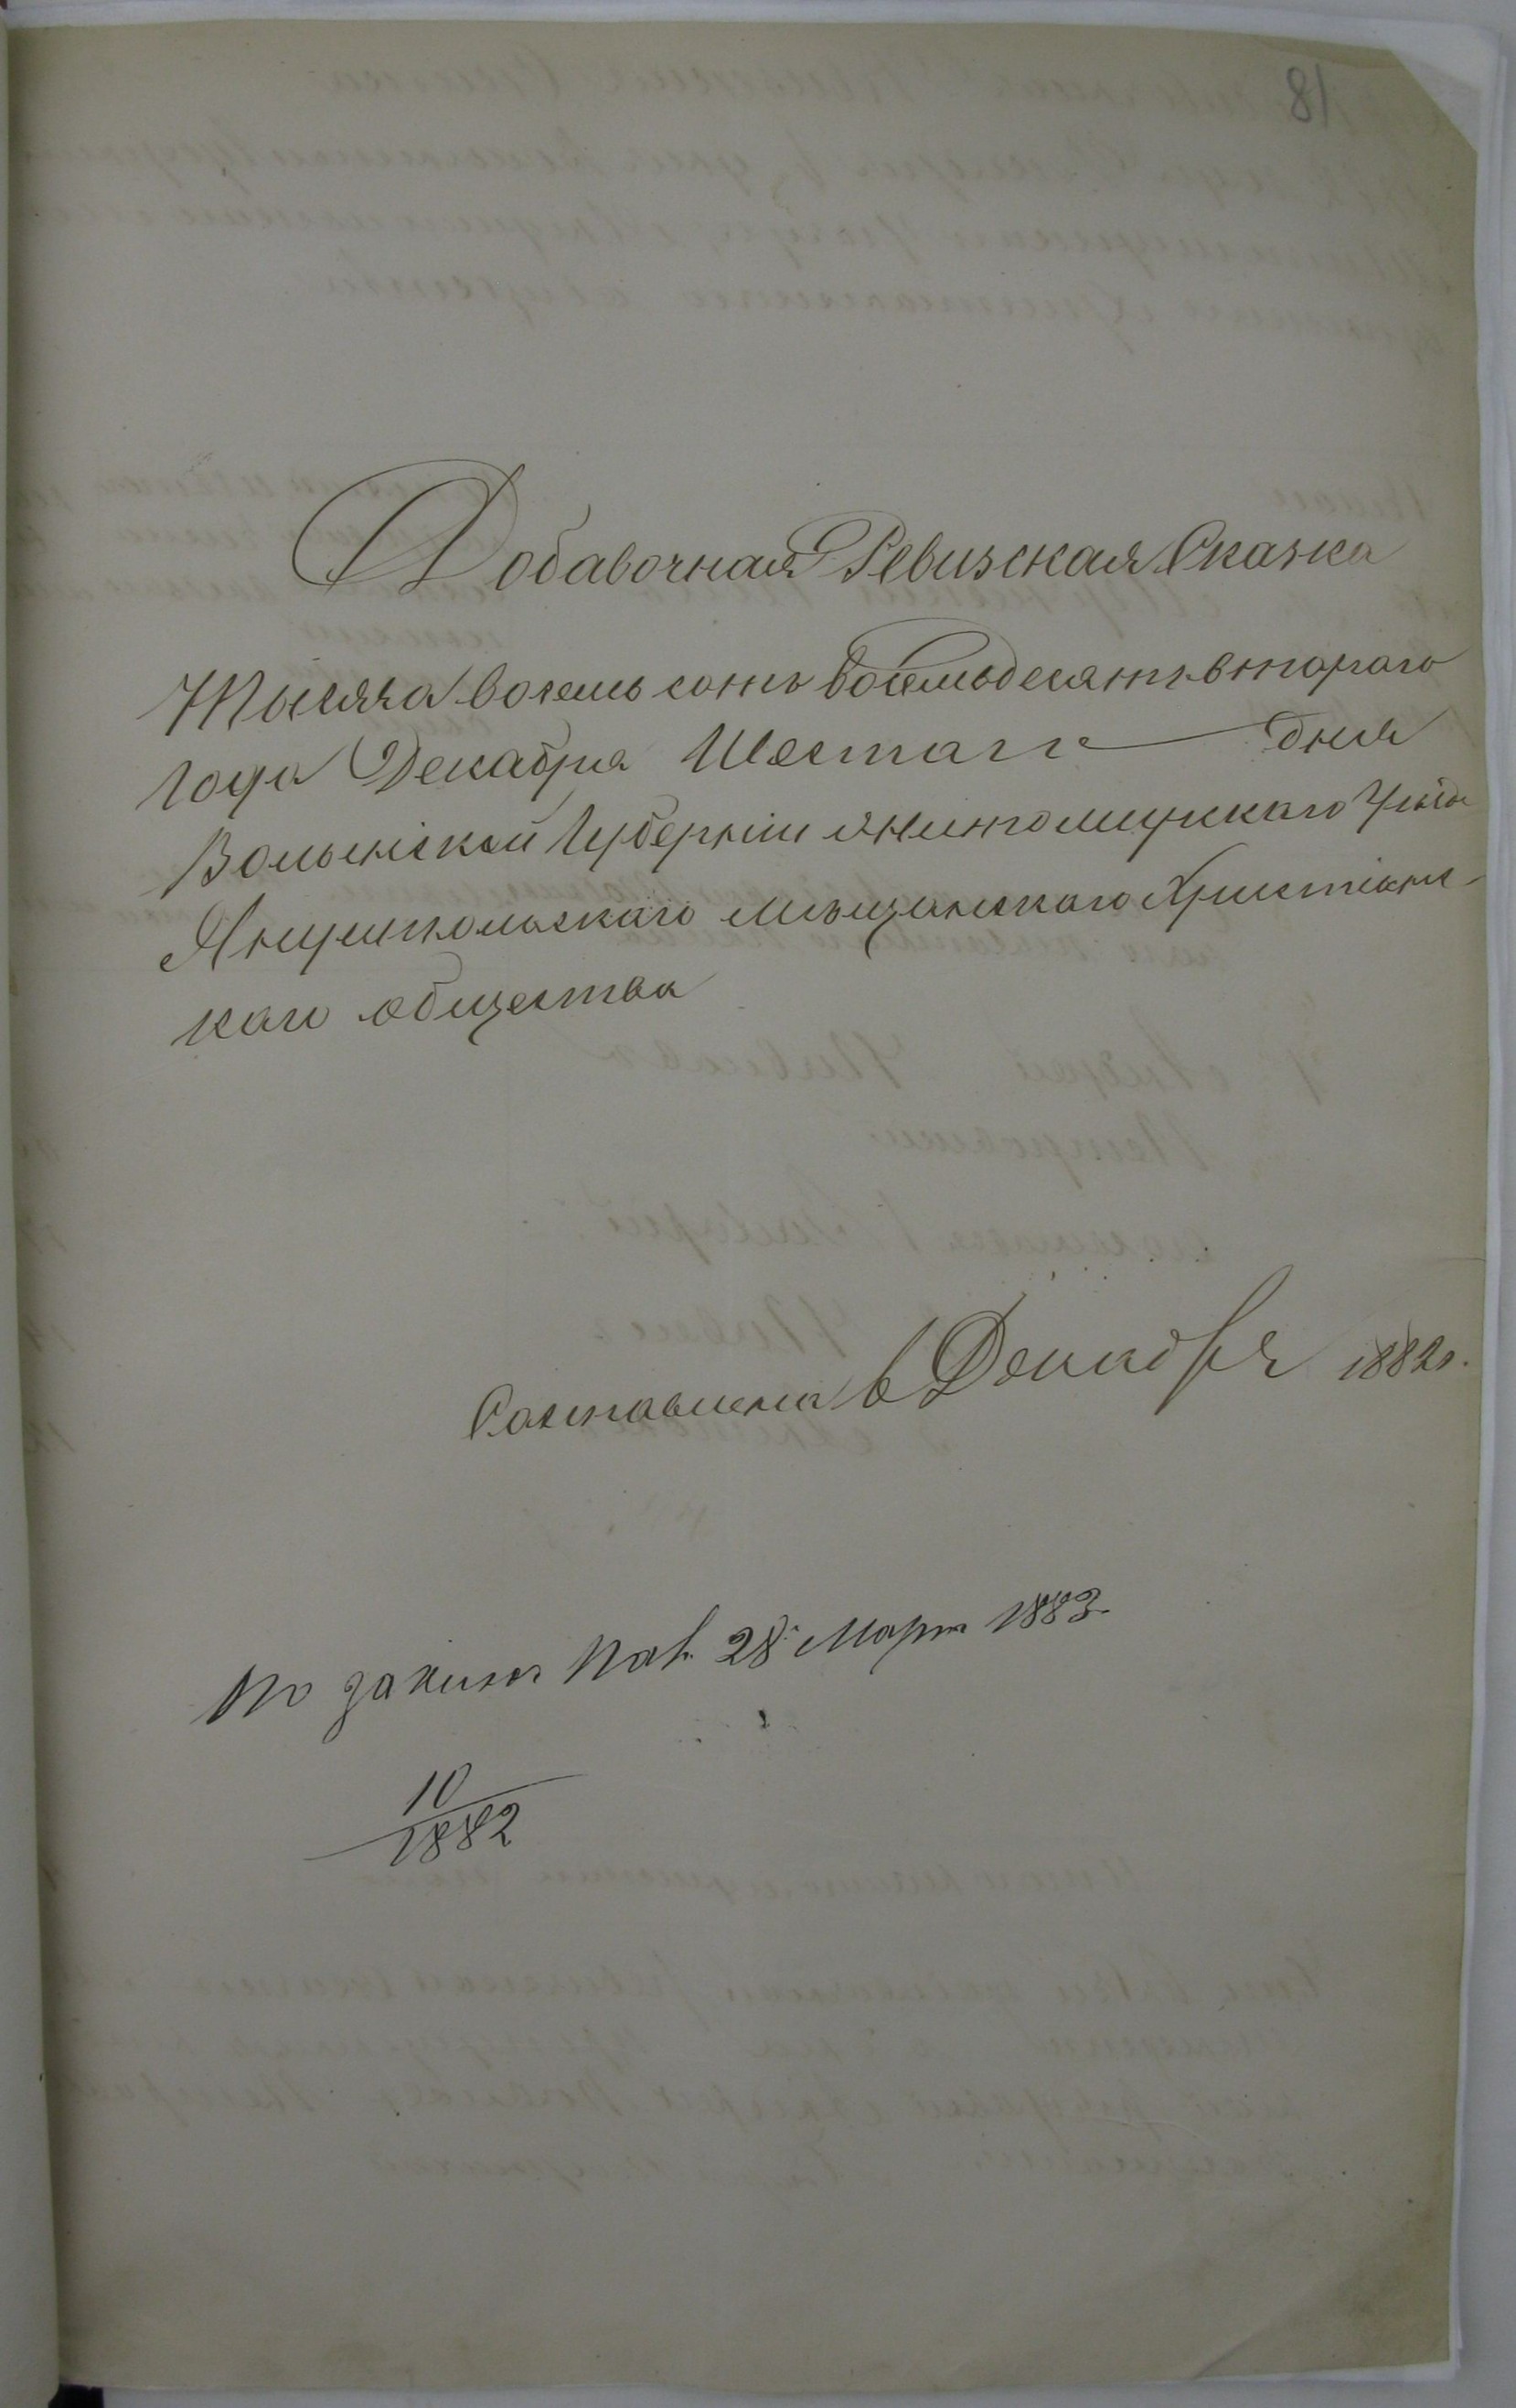 81
Добавочная Ревизская Сказка
Тысяча восемь сотъ восемьдесятъ втораго
года Декабря Шестаго дня
Волынской Губерніи Житомирскаго Уѣзда
Янушпольскаго Мѣщанскаго Христіанс-
каго общества
Составлена в Декабря 1882 г.
По 28 Марта 1883
10
1882